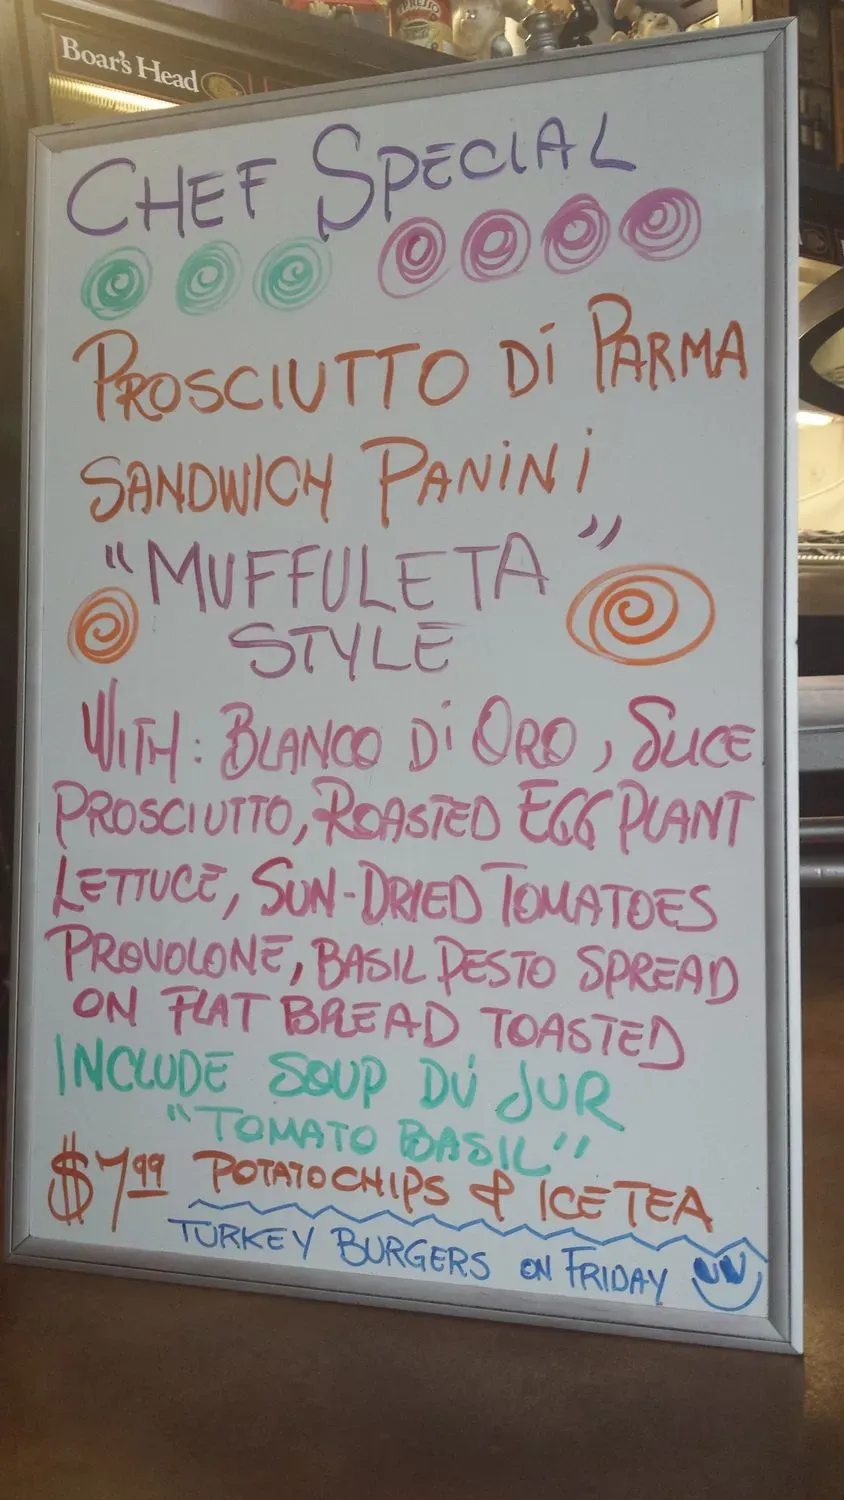 Boar's Head
CHEF SPECIAL
PROSCIUTTO Di PARMA
SANDWICH PANiNi
"MUFFULETA"
STYLE
WITH: BLANCO Di ORO, SLICE
PROSCIUTTO, ROASTED EGG PLANT
LETTUCE, SUN-DRIED TOMATOES
PROVOLONE, BASIL PESTO SPREAD
ON FLAT BREAD TOASTED
INCLUDE SOUP DÚ JUR
"TOMATO BASIL"
$7.99 POTATO CHIPS & ICE TEA
TURKEY BURGERS ON FRIDAY